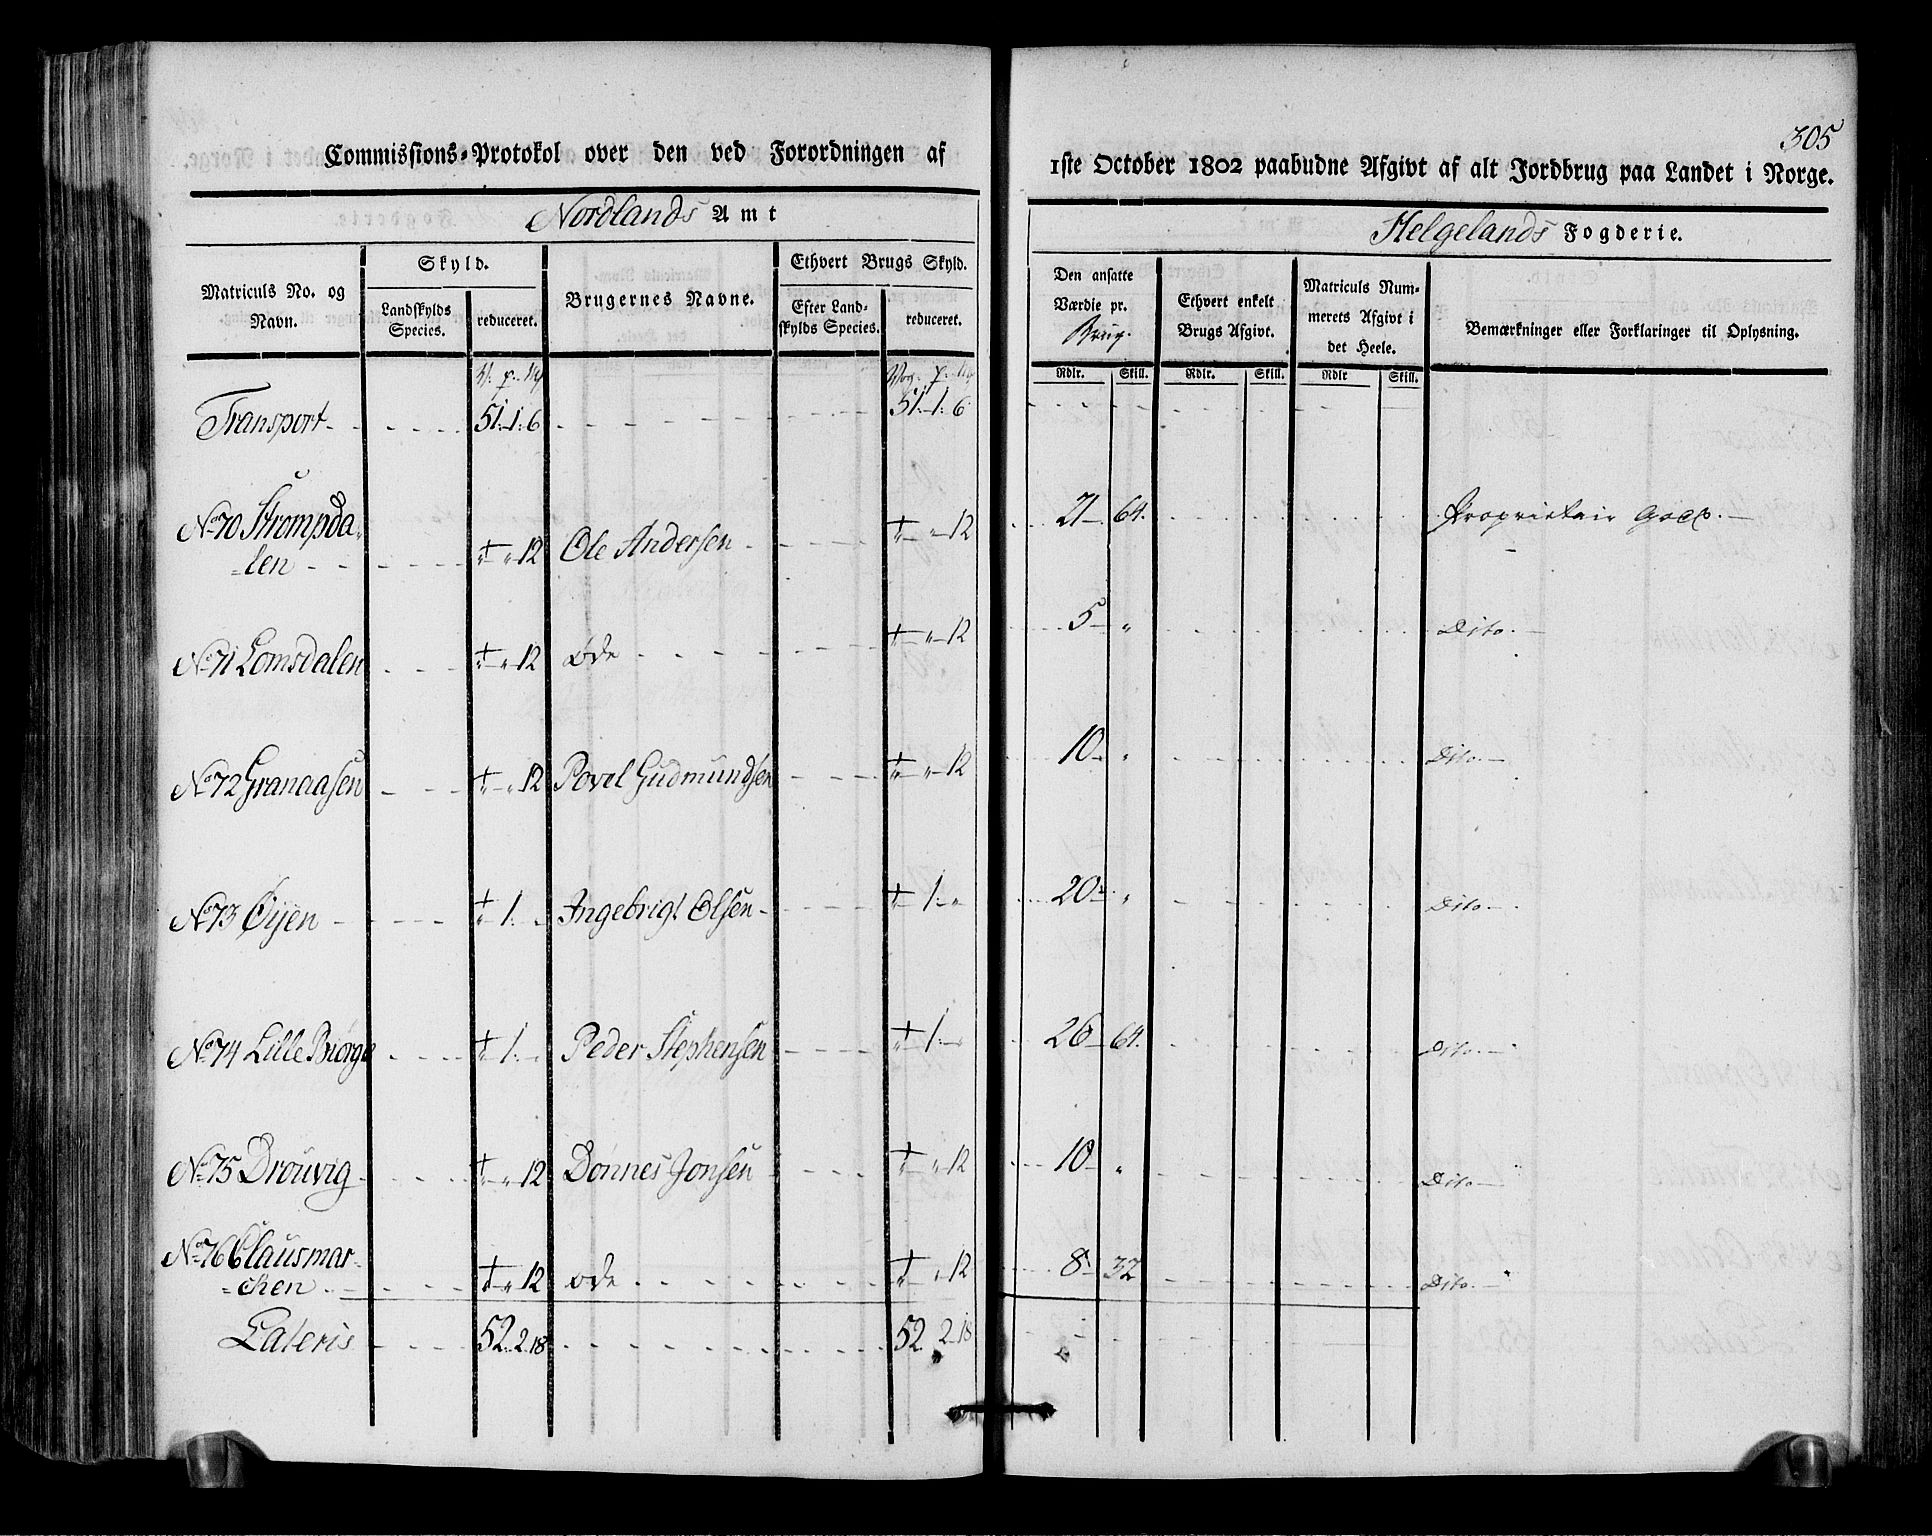 305
Commissions-Protokol over den ved Forordningen af
1ste October 1802 paabudne Afgivt af alt Jordbrug paa Landet i Norge.
Nordlands Amt
Helgelands Fogderie.
Matriculs No. og Navn.
Skyld.
Landskylds Species.
reduceret.
Brugernes Navne.
Ethvert Brugs Skyld.
Efter Landskylds Species.
reduceret.
Den ansatte Værdie pr. Brug.
Ethvert enkelt Brugs Afgivt.
Matriculs Nummerets Afgivt i det Heele.
Bemærkninger eller Forklaringer til Oplysning.
Rdlr. Skill. Rdlr. Skill. Rdlr Skill.
V. p. M Vog. p. M
Transport 51. 1. 6 51. 1. 6
No 70 Strompda-
len " " 12 Ole Andersen " " 12 21 64. Proprietair Gods.
No 71 Lomsdalen " " 12 øde " " 12 5 " Dito
No 72 Granaasen " " 12 Povel Gudmundsen " " 12 10 " Dito
No 73 Öyen " 1. " Ingebrigt Olsen " 1. " 20 " Dito
No 74 Lille Biørge " 1. " Peder Stephensen " 1. " 26 64. Dito
No 75 Drouvig " " 12 Dønnes Jonsen " " 12 10 " Dito
No 76 Clausmar-
chen " " 12 øde " " 12 8 32 Dito
Lateris 52. 2. 18 52 2 18